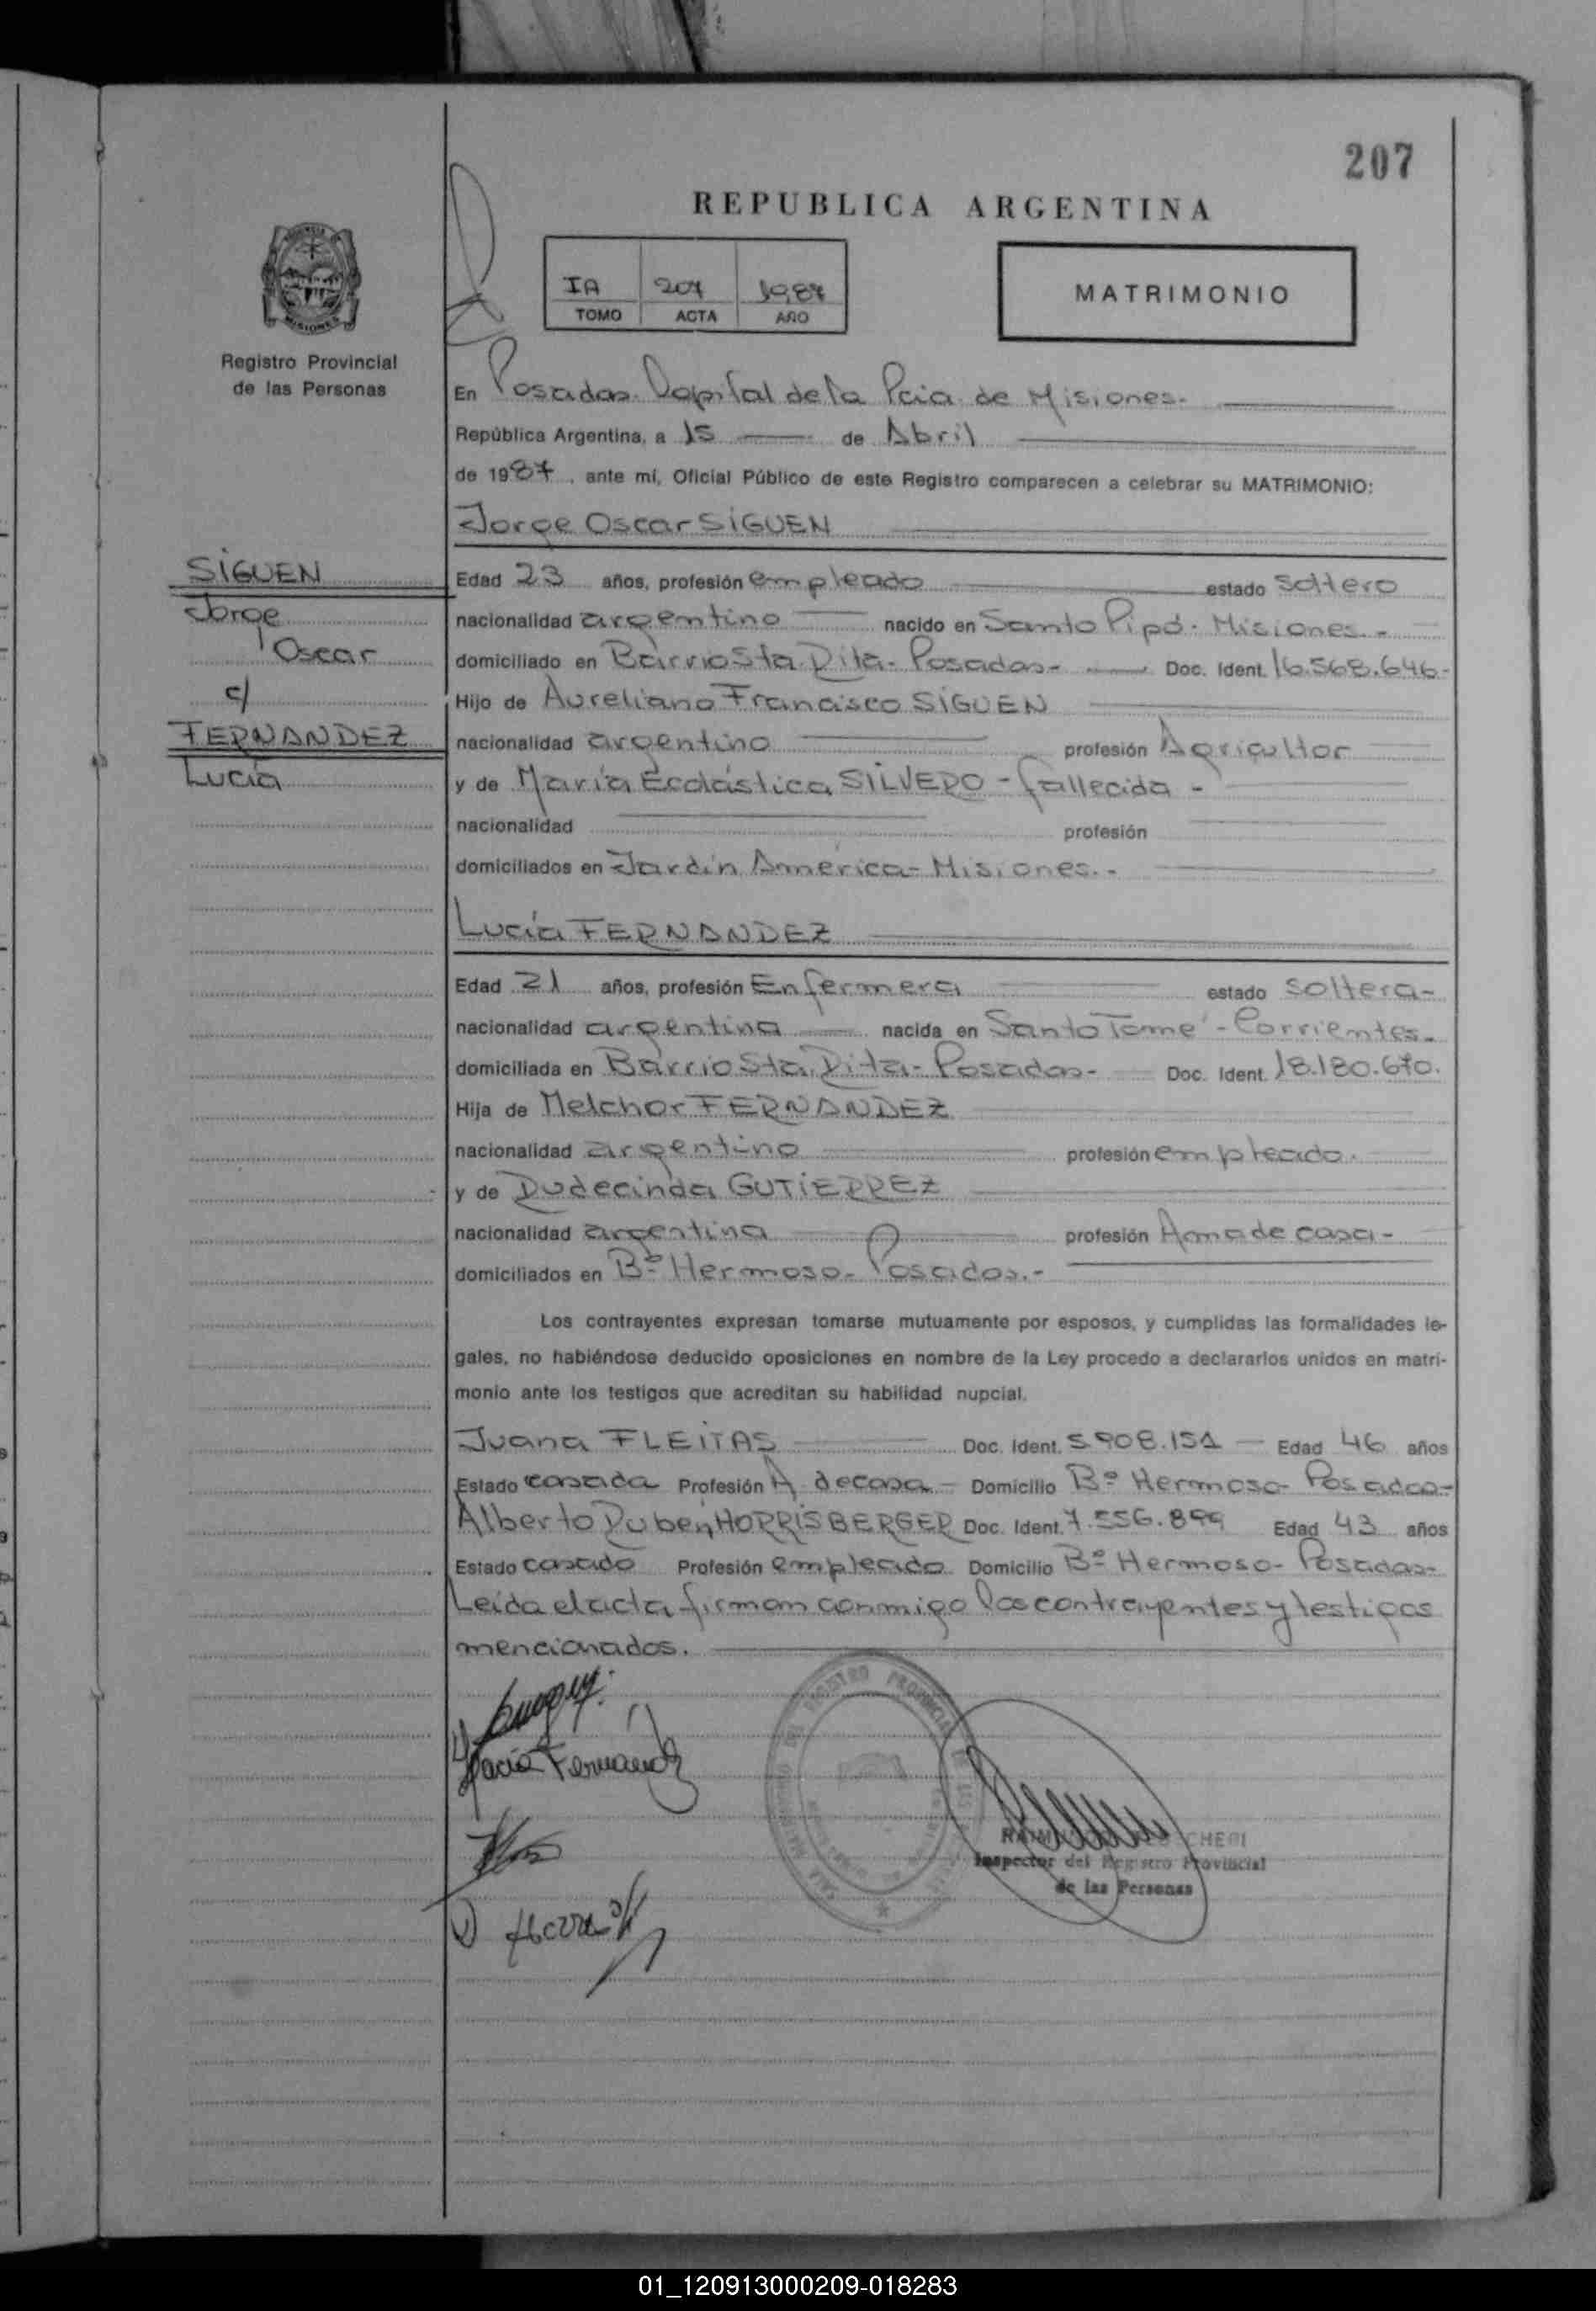 207
REPUBLICA ARGENTINA
IA 207 1987
TOMO ACTA AÑO
MATRIMONIO
Registro Provincial
de las Personas
En Posadas Capital de la Pcia de Misiones.
República Argentina, a 15 de Abril
de 1987, ante mí, Oficial Público de este Registro comparecen a celebrar su MATRIMONIO:
Jorge Oscar SIGUEN
SIGUEN
Jorge
Oscar
c/
FERNANDEZ
Lucía
Edad 23 años, profesión empleado estado soltero
nacionalidad argentino nacido en Santo Pipó - Misiones.-
domiciliado en Barrio Sta Rita - Posadas- Doc. Ident. 16.568.646-
Hijo de Aureliano Francisco SIGUEN
nacionalidad argentino profesión Agricultor
y de María Ecolástica SILVERO - fallecida -
nacionalidad profesión
domiciliados en Jardín América - Misiones.-
Lucía FERNANDEZ
Edad 21 años, profesión Enfermera estado soltera-
nacionalidad argentina nacida en Santo Tomé - Corrientes-
domiciliada en Barrio Sta. Rita - Posadas- Doc. Ident. 18.180.670.
Hija de Melchor FERNANDEZ
nacionalidad argentino profesión empleado.
y de Rudecinda GUTIERREZ
nacionalidad argentina profesión Ama de casa-
domiciliados en Bº Hermoso - Posadas.-
Los contrayentes expresan tomarse mutuamente por esposos, y cumplidas las formalidades le-
gales, no habiéndose deducido oposiciones en nombre de la Ley procedo a declararlos unidos en matri-
monio ante los testigos que acreditan su habilidad nupcial.
Juana FLEITAS Doc. Ident. 5.908.151 Edad 46 años
Estado casada Profesión A. de casa - Domicilio Bº Hermoso - Posadas-
Alberto Rubén HORRISBERGER Doc. Ident. 7.556.899 Edad 43 años
Estado casado Profesión empleado Domicilio Bº Hermoso - Posadas-
Leída el acta firman conmigo los contrayentes y testigos
mencionados.
Lucía Fernández
Inspector del Registro Provincial
de las Personas
01_120913000209-018283